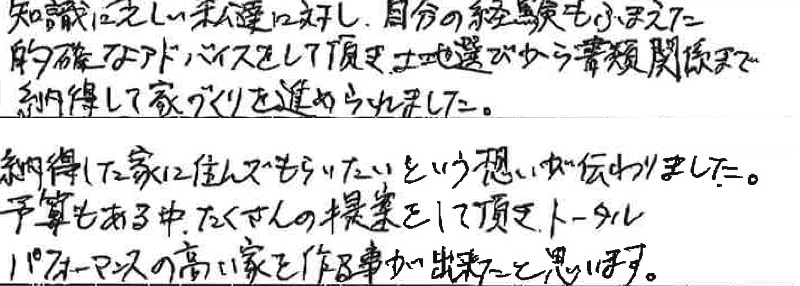 知識に乏しい私達に対し、自分の経験もふまえた
的確なアドバイスをして頂き、土地選びから書類関係まで
納得して家づくりを進められました。
納得した家に住んでもらいたいという想いが伝わりました。
予算もある中、たくさんの提案をして頂き、トータル
パフォーマンスの高い家を作る事が出来たと思います。